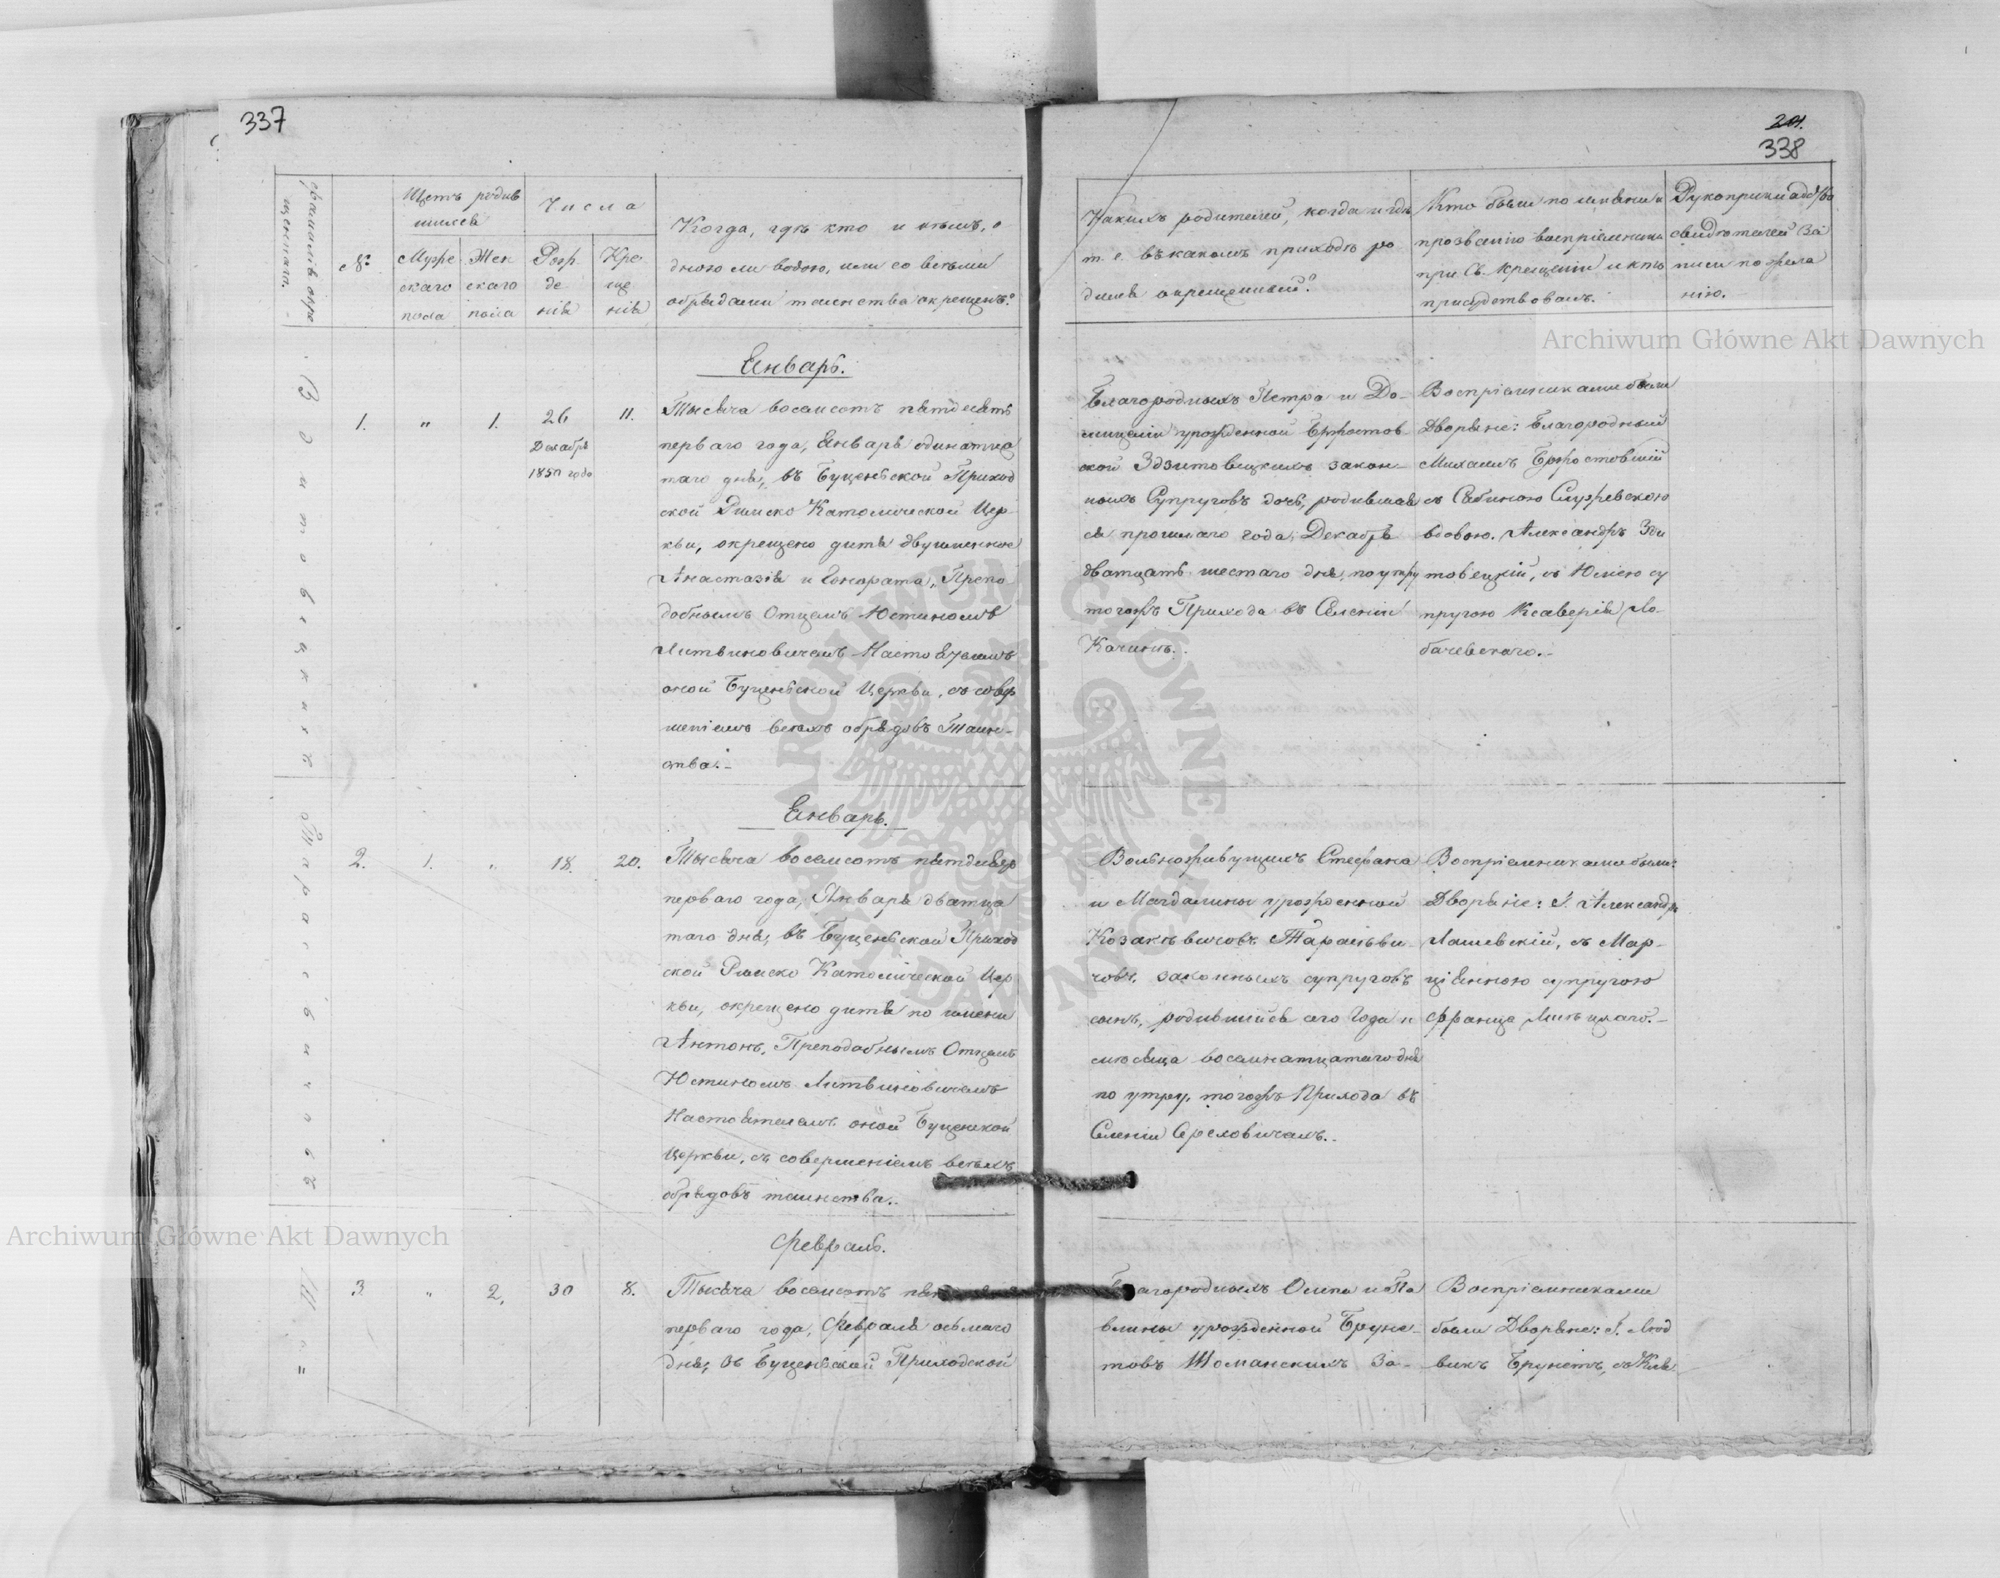 337
201.
338
Фамилія окре
щеннаго.
№
Щетъ родив
шихся
Муже
скаго
пола
Жен
скаго
пола
Числа
Рож
де
нія
Кре
ще
нія
Когда, гдѣ кто и кѣмъ, о
дною ли водою, или со всѣми
обрядами таинства окрещенъ?
Какихъ родителей, когда и гдѣ
т. е. въ какомъ приходѣ ро
дился окрещенный?
Кто были по имени и
прозванію воспріемники
при Св. крещеніи и кто
присудствовалъ.
Рукоприкладство
свидѣтелей За
писи по жела
нію.
Archiwum Główne Akt Dawnych
Январь.
1.
"
1.
26
Декабря
1850 года
11.
Тысяча восемсотъ пятдесятъ
перваго года, Января одинатца
таго дня, въ Буценьской Приход
ской Римско Католической Цер-
кви, окрещено дитя двуименное
Анастазія и Гонората, Препо
добнымъ Отцемъ Юстиномъ
Литвиновичемъ Настоятелемъ
оной Буценьской Церкви, съ совер
шеніемъ всѣхъ обрядовъ Таин-
ства.
Благородныхъ Петра и До-
мицели урожденной Бржостов
ской Здзитовецкихъ закон-
ныхъ Супруговъ дочь, родившая
ся прошлаго года, Декабря
дватцать шестаго дня, по утру
тогожъ Прихода въ Селеніи
Качинѣ.
Воспріемниками были
Дворяне: Благородный
Михаилъ Бржостовскій
съ Сабиною Служевскою
вдовою. Александръ Зди
товецкій, съ Юлією су
пругою Ксаверія Ло-
бачевскаго.
Январь.
2.
1.
"
18.
20.
Тысяча восемсотъ пятдесятъ
перваго года, Января дватца
таго дня, въ Буценьской Приход
ской Римско Католической Цер
кви, окрещено дитя по имени
Антонъ, Преподобнымъ Отцемъ
Юстиномъ Литвиновичемъ
Настоятелемъ оной Буценской
Церкви, съ совершеніемъ всѣхъ
обрядовъ таинства.
Вольноживущихъ Стефана
и Магдалины урожденной
Козакѣвичовъ Тарасѣви-
човъ законныхъ супруговъ
сынъ, родившійся сего Года и
мѣсяца восемнатцатаго дня
по утру, тогожъ Прихода въ
Селеніи
Воспріемниками были:
Дворяне: Г. Александръ
Лашевскій, съ Мар-
ціянною супругою
Франца
Archiwum Główne Akt Dawnych
Февраль.
3.
"
2.
30
8.
Тысяча восемсотъ
перваго года, Февраля осьмаго
дня, въ Буценьской Приходской
Благородныхъ Осипа и Па
влины урожденной Бруне-
товъ Шоманскихъ за-
Воспріемниками
были Дворяне: Г. Люд
викъ Брунетъ,